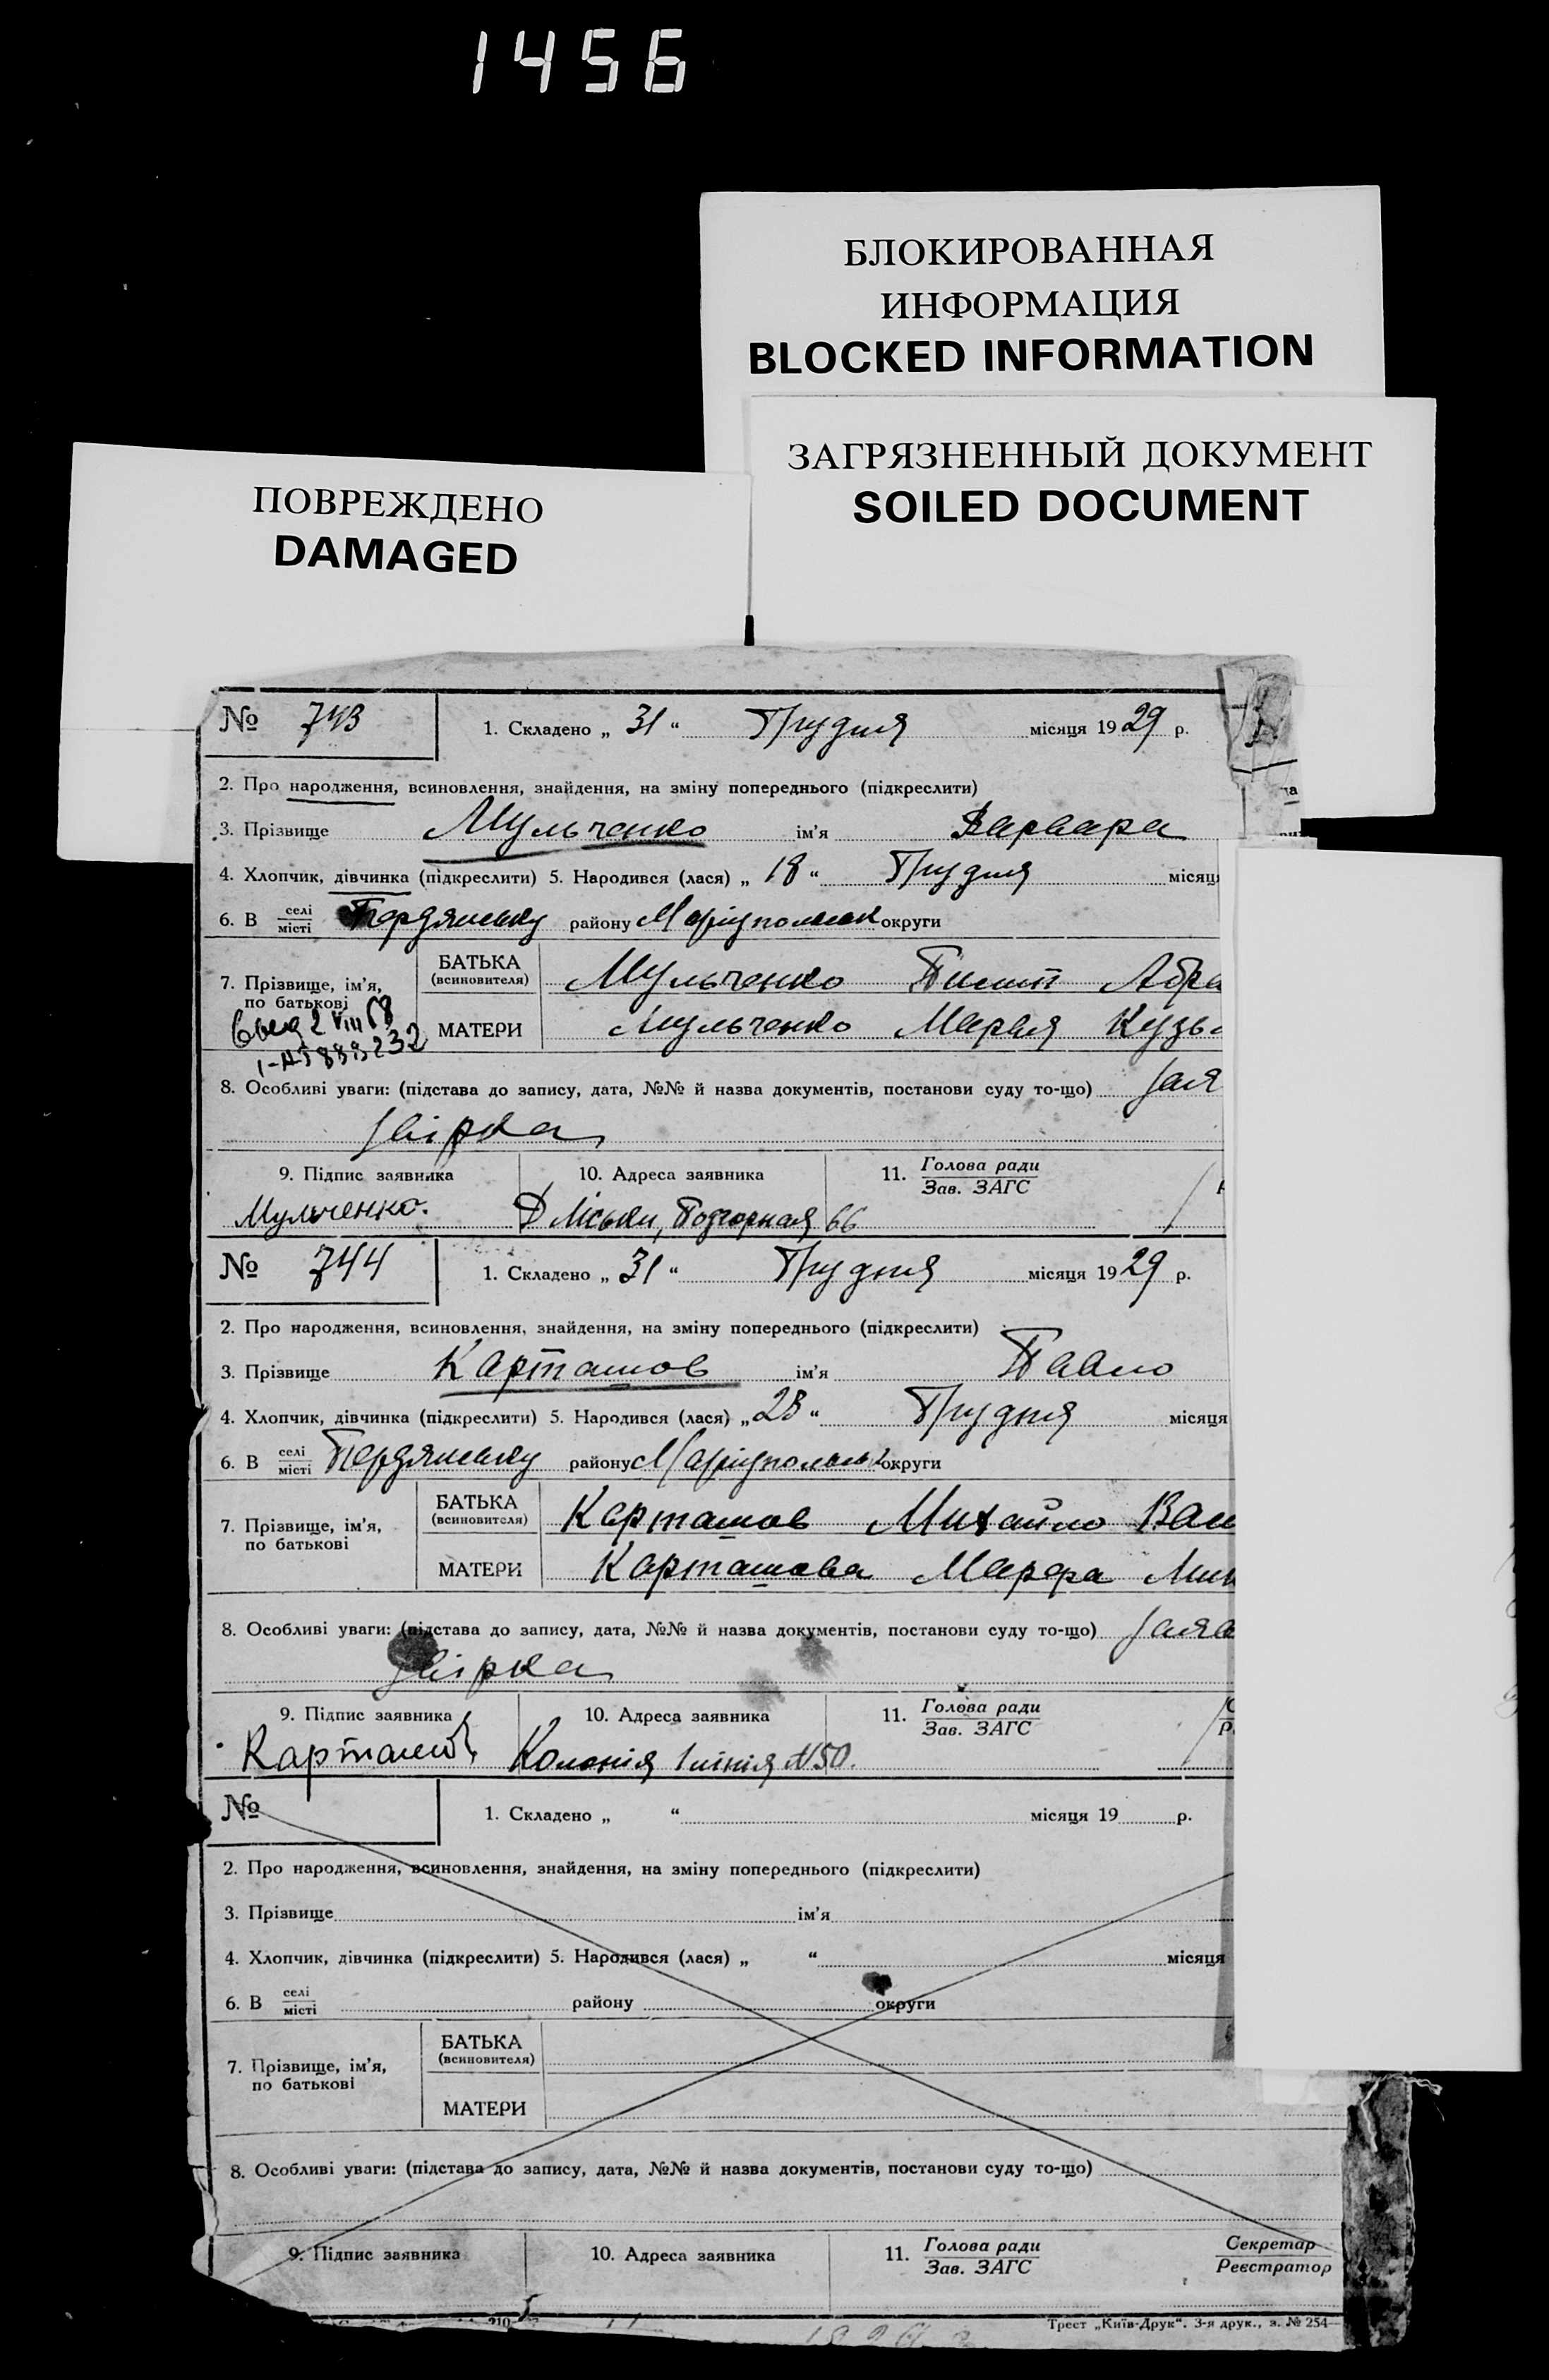 1456
БЛОКИРОВАННАЯ
ИНФОРМАЦИЯ
BLOCKED INFORMATION
ЗАГРЯЗНЕННЫЙ ДОКУМЕНТ
SOILED DOCUMENT
ПОВРЕЖДЕНО
DAMAGED
№ 743 1. Складено „ 31 “ Грудня місяця 1929 р.
2. Про народження, всиновлення, знайдення, на зміну попереднього (підкреслити)
3. Прізвище Мульченко ім'я Варвара
4. Хлопчик, дівчинка (підкреслити) 5. Народився (лася) „ 18 “ Грудня місяц
6. В селі/місті Бердянську району Маріупольськ округи
7. Прізвище, ім'я, по батькові
БАТЬКА (всиновителя) Мульченко Пимит Абра
МАТЕРИ Мульченко Мария Кузь
8. Особливі уваги: (підстава до запису, дата, №№ й назва документів, постанови суду то-що) Зая
Звірка
9. Підпис заявника 10. Адреса заявника 11. Голова ради/Зав. ЗАГС
Мульченко. Лiськи, Подгорная 66
№ 744 1. Складено „ 31 “ Грудня місяця 1929 р.
2. Про народження, всиновлення, знайдення, на зміну попереднього (підкреслити)
3. Прізвище Карташов ім'я Павло
4. Хлопчик, дівчинка (підкреслити) 5. Народився (лася) „ 28 “ Грудня місяця
6. В селі/місті Бердянську району Маріупольськ округи
7. Прізвище, ім'я, по батькові
БАТЬКА (всиновителя) Карташов Михайло Ваи
МАТЕРИ Карташова Марфа Мик
8. Особливі уваги: (підстава до запису, дата, №№ й назва документів, постанови суду то-що) Заяв
Звірка
9. Підпис заявника 10. Адреса заявника 11. Голова ради/Зав. ЗАГС
Карташов Колонія 1 лінія №50.
№ 1. Складено „ “ місяця 19 р.
2. Про народження, всиновлення, знайдення, на зміну попереднього (підкреслити)
3. Прізвище ім'я
4. Хлопчик, дівчинка (підкреслити) 5. Народився (лася) „ “ місяця
6. В селі/місті району округи
7. Прізвище, ім'я, по батькові
БАТЬКА (всиновителя)
МАТЕРИ
8. Особливі уваги: (підстава до запису, дата, №№ й назва документів, постанови суду то-що)
9. Підпис заявника 10. Адреса заявника 11. Голова ради/Зав. ЗАГС Секретар/Реєстратор
Трест „Київ-Друк“. 3-я друк., з. № 254